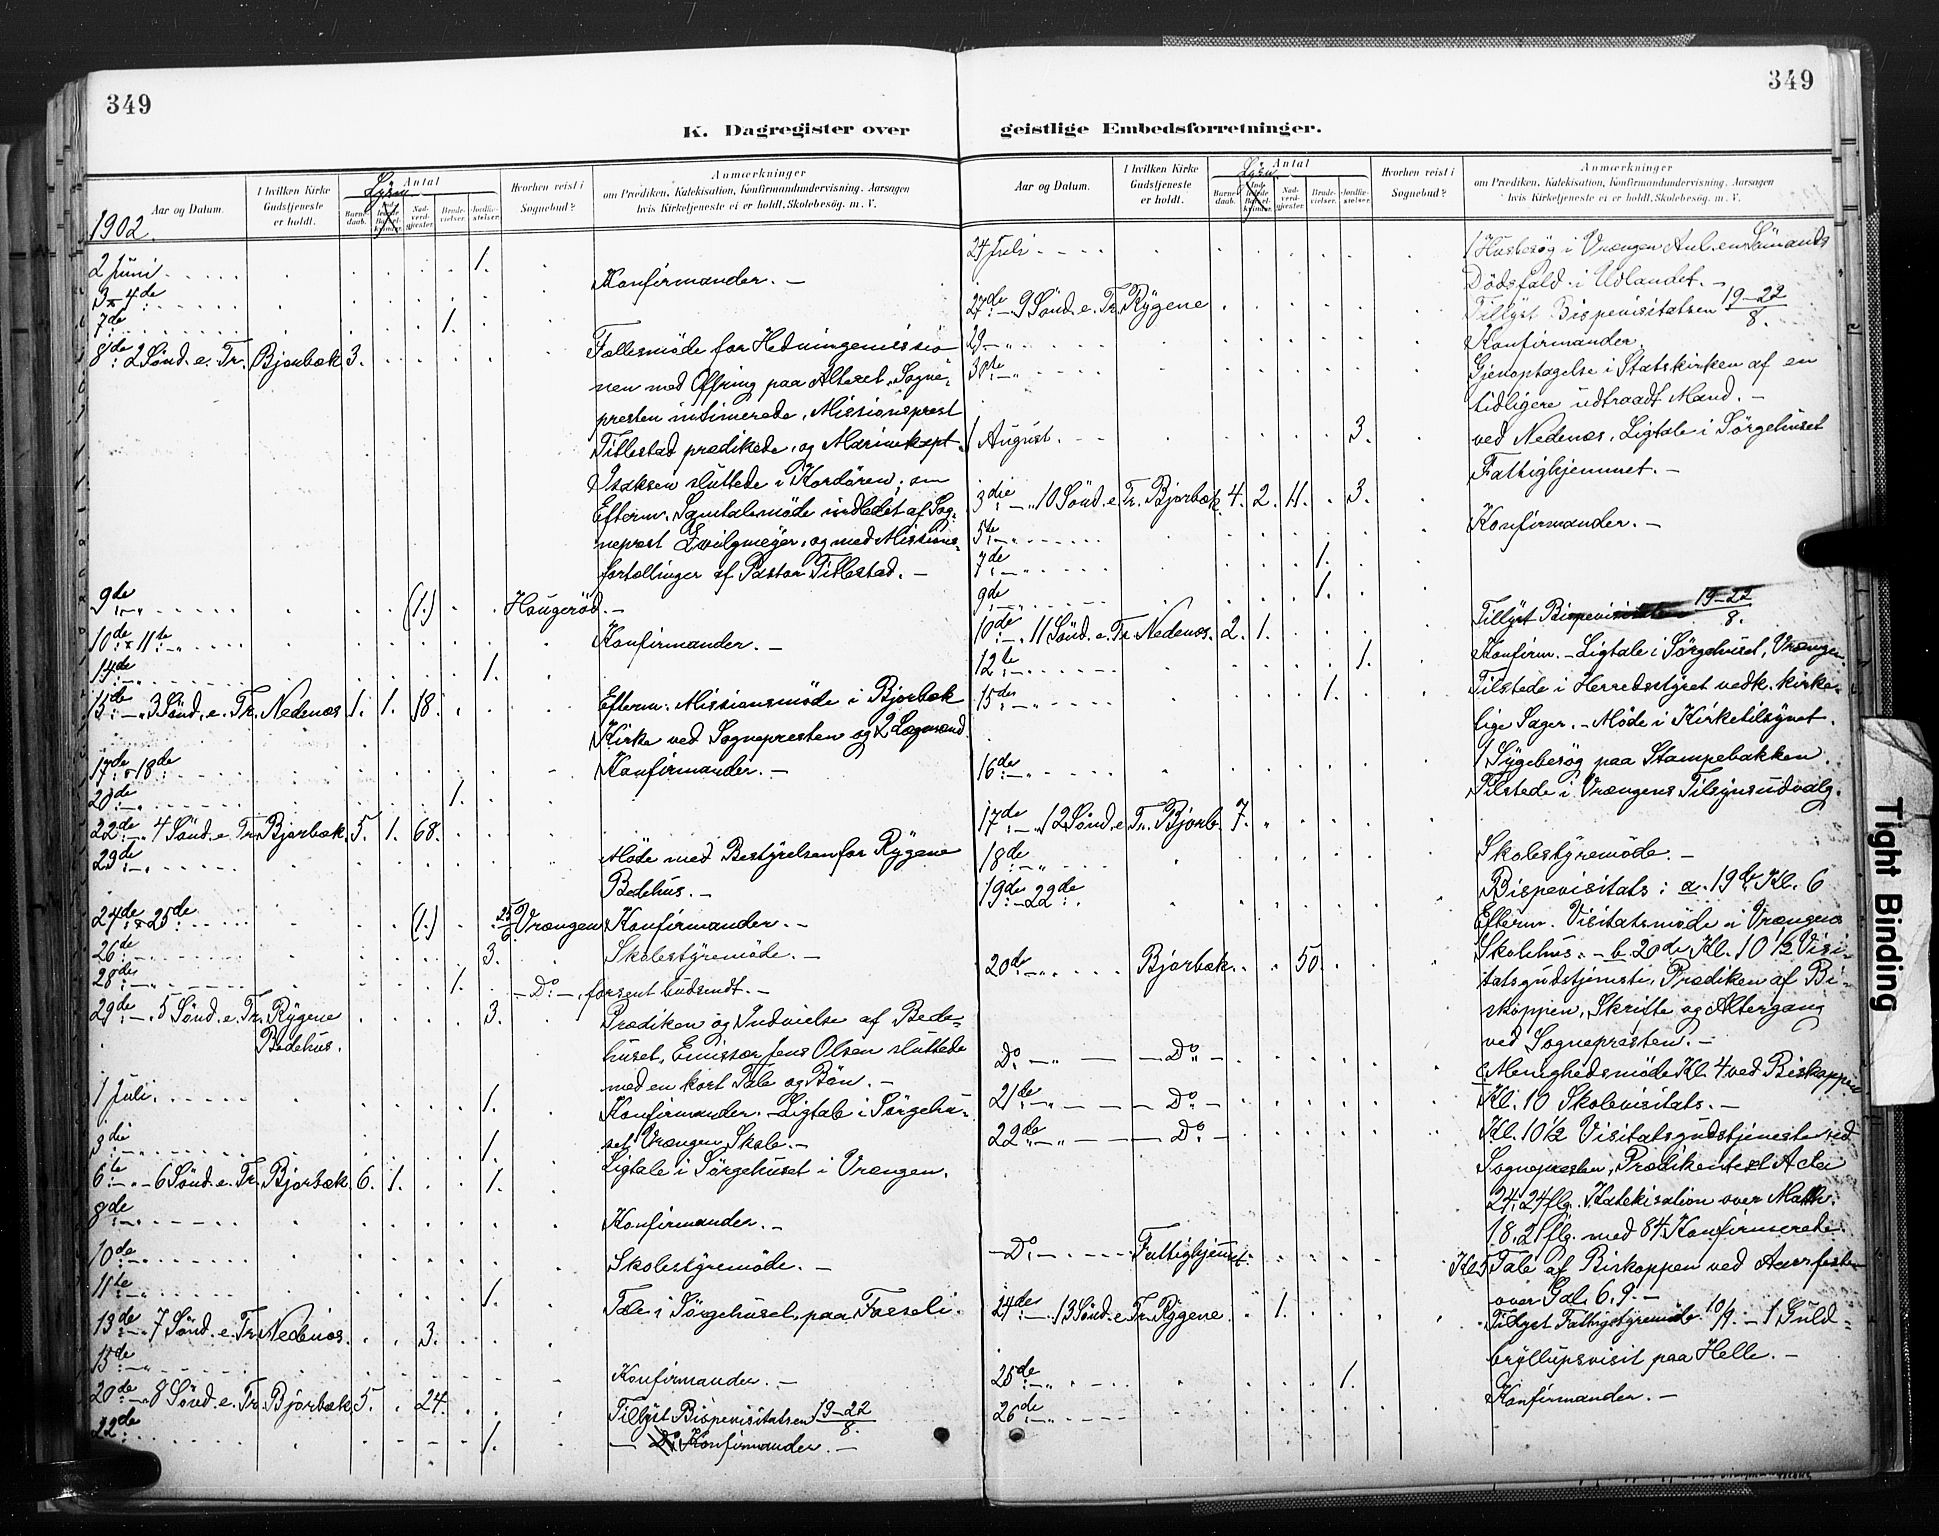 349
K. Dagregister over
Aar og Datum.
I hvilken Kirke Gudstjeneste er holdt.
Antal
Barne-daab.
Nad-verd-gjester
Brude-vielser.
Jordfæ-stelser.
Hvorhen reist i Sognebud?
Anmerkninger
om Prædiken, Katekisation, Konfirmandundervisning, Aarsagen hvis Kirketjeneste ei er holdt, Skolebesøg. m. V.
1902.
2 Juni 1.
3-4de Konfirmander. —
7de 1.
8de 2 Sønd. e. Tr. Bjorbæk 3. Fællesmøde for Hedningemissio
nen med Offring paa Alteret. Sogne-
presten intimerede, Missionsprest
Titlestad prædikede, og Marinekapt.
Isaksen sluttede i Kordøren; om
Efterm. Samtalemøde indledet af Sog-
neprest og med Missions-
fortællinger af Pastor Titlestad. —
9de (1.) Haugerød. —
10de & 11te Konfirmander. —
14de 1.
15de 3 Sønd. e. Tr. Nedenæs 1. 1. 18. Efterm. Missionsmøde i Bjorbæk
Kirke ved Sognepresten og 2 Lægmænd.
17de & 18de Konfirmander. —
20de 1.
22de 4 Sønd. e. Tr. Bjorbæk. 5. 1. 68.
23de Møde med Bestyrelsen for Rygene
Bedehus. —
24de & 25de (1.) 25/6 Vrængen Konfirmander. —
26de 3. Skolestyremøde. —
28de 1. — Do —, forsent budsendt. —
29de 5 Sønd. e. Tr. Rygene 3. Prædiken og Indvielse af Bede-
Bedehus. huset, Emissær Jens Olsen sluttede
med en kort Tale og Bøn. —
1 Juli. 1. Konfirmander. — Ligtale i Sørgehu-
set Vrængen Skole. —
3die 1. Ligtale i Sørgehuset i Vrængen.
6te 6 Sønd. e. Tr. Bjorbæk 6. 1. 1.
8de Konfirmander. —
10de Skolestyremøde. —
11te 1. Tale i Sørgehuset paa
13de 7 Sønd. e. Tr. Nedenæs. 3.
15de Konfirmander. —
20de 8 Sønd. e. Tr. Bjorbæk 5. 24. Tillyst Bispevisitatsen 19-22/8.
22de 1. — Do Konfirmander. —
349
geistlige Embedsforretninger.
Aar og Datum.
I hvilken Kirke Gudstjeneste er holdt.
Antal
Barne-daab.
Nad-verd-gjester
Brude-vielser.
Jordfæ-stelser.
Hvorhen reist i Sognebud?
Anmerkninger
om Prædiken, Katekisation, Konfirmandundervisning, Aarsagen hvis Kirketjeneste ei er holdt, Skolebesøg. m. V.
24 Juli 1 Husbesøg i Vrængen Anl. en Sømands
Dødsfald i Udlandet. —
27de 9 Sønd. e. Tr. Rygene Tillyst Bispevisitatsen 19-22/8.
29 Konfirmander.
30te Gjenoptagelse i Statskirken af en
tidligere udtraadt Mand. —
1 August. 3. ved Nedenæs, Ligtale i Sørgehuset
Fattighjemmet. —
3die 10 Sønd. e. Tr. Bjorbæk 4. 2. 11. 3.
5te Konfirmander. —
7de 1.
9de 1.
10de 11 Sønd. e. Tr. Nedenæs. 2. 1. Tillyst Bispevisitatsen 19-22/8.
12te 1. Konfirm. — Ligtale i Sørgehuset, Vrængen.
15de 1. Tilstede i Herredsstyret vedk. kirke-
lige Sager. — Møde i Kirketilsynet.
16de 1 Sygebesøg paa Stampebakken.
Tilstede i Vrængens Tilsynsudvalg.
17de 12 Sønd. e. Tr. Bjorb. 7.
18de Skolestyremøde. —
19de-22de Bispevisitats: a. 19de Kl. 6
Efterm. Visitatsmøde i Vrængens
Skolehus. — b. 20de Kl. 10 1/2 Visi-
20de Bjorbæk. 50. tatsgudstjeneste, Prædiken af Bi-
skoppen, Skrifte og Altergang
ved Sognepresten. —
Do — Do — Menighedsmøde Kl. 4 ved Biskoppen
21de — Do — Kl. 10 Skolevisitats. —
22de — Do — Kl. 10 1/2 Visitatsgudstjeneste ved
Sognepresten, Prædikentext Acta
24, 24 flg. Katekisation over Math.
18, 21 flg. med 84 Konfirmerede.
— Do — Fattighjemmet. Kl. 5 Tale af Biskoppen ved
over Gal. 6, 9. —
24de 13 Sønd. e. Tr. Rygene. 1. Tillyst Fattigstyremøde 10/9. — 1 Guld-
bryllupsvisit paa Helle. —
25de 1. Konfirmander. —
26de
Tight Binding